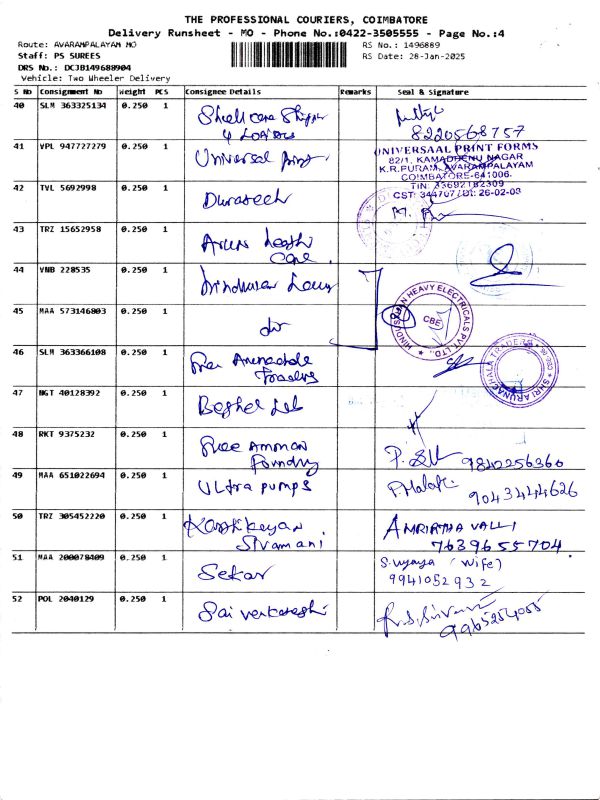 THE PROFESSIONAL COURIERS, COIMBATORE
Delivery Runsheet - MO - Phone No.:0422-3505555 - Page No.:4
Route: AVARAMPALAYAM MO
RS No.: 1496889
Staff: PS SUREES
RS Date: 28-Jan-2025
DRS No.: DCJB149688904
Vehicle: Two Wheeler Delivery
S No Consignment No Weight PCS Consignee Details Remarks Seal & Signature
40 SLM 363325134 0.250 1
8220568757
41 VPL 947727279 0.250 1 Universal Print
UNIVERSAAL PRINT FORMS
82/1, KAMADHENU NAGAR
K.R.PURAM, AVARAMPALAYAM
COIMBATORE-641006.
TIN: 33692182309
CST: 344707 / Dt: 26-02-03
42 TVL 5692998 0.250 1 Duratech
43 TRZ 15652958 0.250 1 Arun Health
Care
44 VNB 228535 0.250 1
45 MAA 573146803 0.250 1 do
HINDUSTAN HEAVY ELECTRICALS PVT. LTD.,
CBE
46 SLM 363366108 0.250 1 Sree Arunachala
Trading
SHRI ARUNACHALA TRADERS
47 NGT 40128392 0.250 1
48 RKT 9375232 0.250 1 Sree Amman
Foundry
9840256360
49 MAA 651022694 0.250 1 Ultra pumps
9043444626
50 TRZ 305452220 0.250 1 Karthikeyan
Sivamani
AMRIRTHA VALLI
7639655704
51 MAA 200078409 0.250 1 Sekar
S. Vijaya (Wife)
9941052932
52 POL 2040129 0.250 1 Sai venkatesh
9965254055